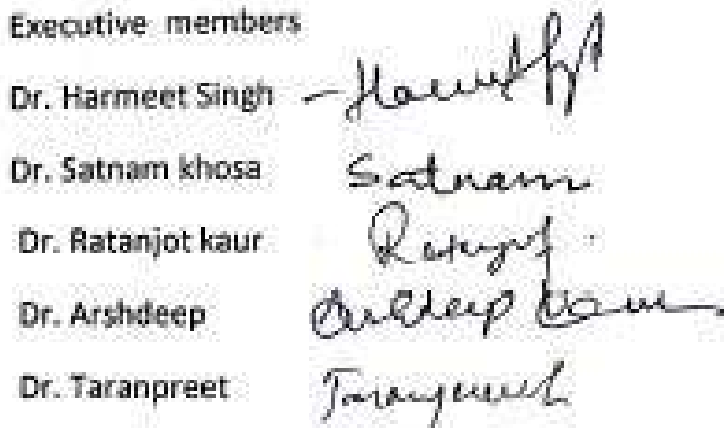 Executive members
Dr. Harmeet Singh - Harmeet
Dr. Satnam khosa Satnam
Dr. Ratanjot kaur Ratanjot
Dr. Arshdeep Arshdeep Kaur
Dr. Taranpreet Taranpreet